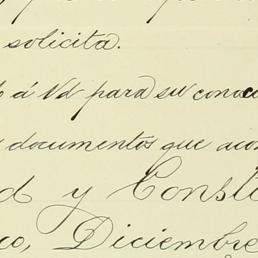 solicita.
á Vd para su conoci
documentos que acom
d y Consti
co, Diciembre